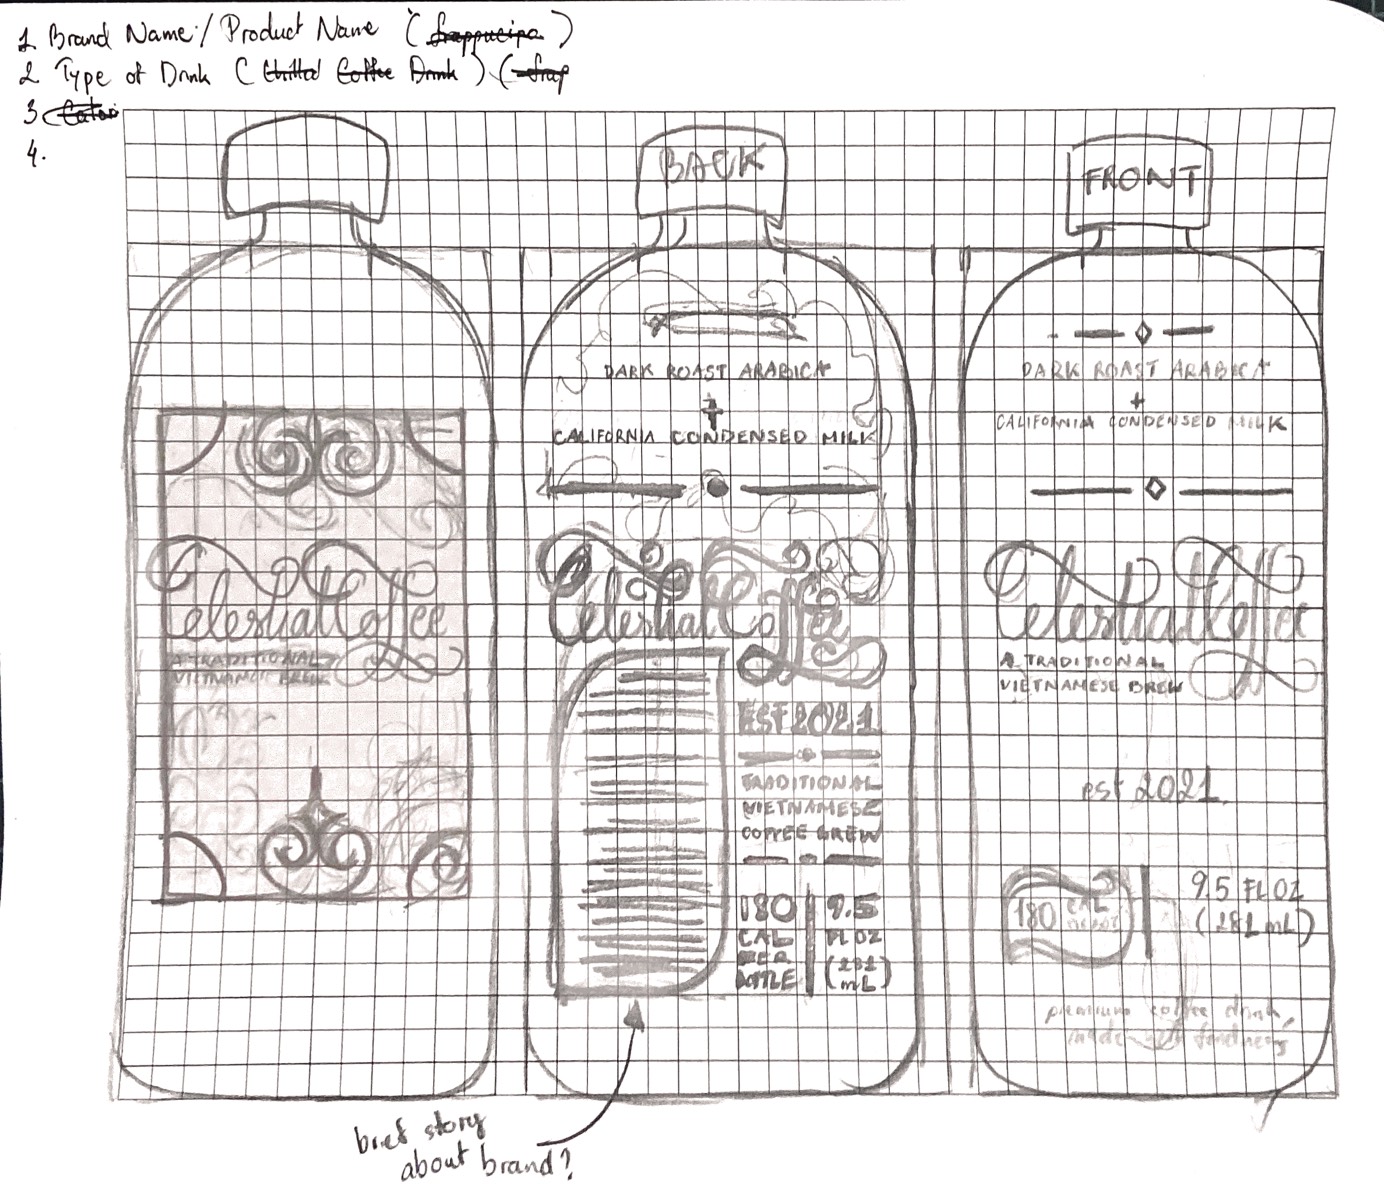 1 Brand Name:/ Product Name (frappucipa)
2 Type of Drink (Chilled Coffee Drink) (frap
3
4.
Celestial Coffee
A TRADITIONAL
VIETNAMESE BREW
BACK
DARK ROAST ARABICA
+
CALIFORNIA CONDENSED MILK
Celestial Coffee
EST 2021
TRADITIONAL
VIETNAMESE
COFFEE BREW
180
CAL
PER
BOTTLE
9.5
FL OZ
(281
mL)
brief story
about brand?
FRONT
DARK ROAST ARABICA
+
CALIFORNIA CONDENSED MILK
Celestial Coffee
A TRADITIONAL
VIETNAMESE BREW
est 2021
180 CAL
9.5 FL OZ
(281 mL)
premium coffee drink,
made with fondness